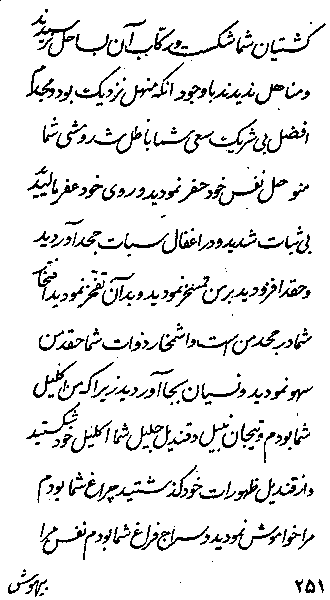 کشتیان شما شکست و رکّاب آن بساحل نرسیدند
و مناهل ندیدند با وجود آنکه منهل نزدیک بود و مجد که
افضل بی شریک سعی شما باطل شد روشی شما
منوحل نفس خود حفر نمودید و روی خود عفر بالیدید
بی ثبات شدید و در اغفال سبات جحد آوردید
و حقد افزودید بر من تمسخر نمودید و بدان تفخّر نمودید افتخار
شما در مجد من است و اشمخار ذوات شما حقد من
سهو نمودید و نسیان بجا آوردید زیرا که من اکلیل
شما بودم و تیجان نبیل و قندیل جلیل شما اکلیل خود شکستید
و از قندیل ظهورات خود گذشتید چراغ شما بودم
مرا خواموش نمودید و سراج فراغ شما بودم نفس مرا
بیهوش
۲۵۱